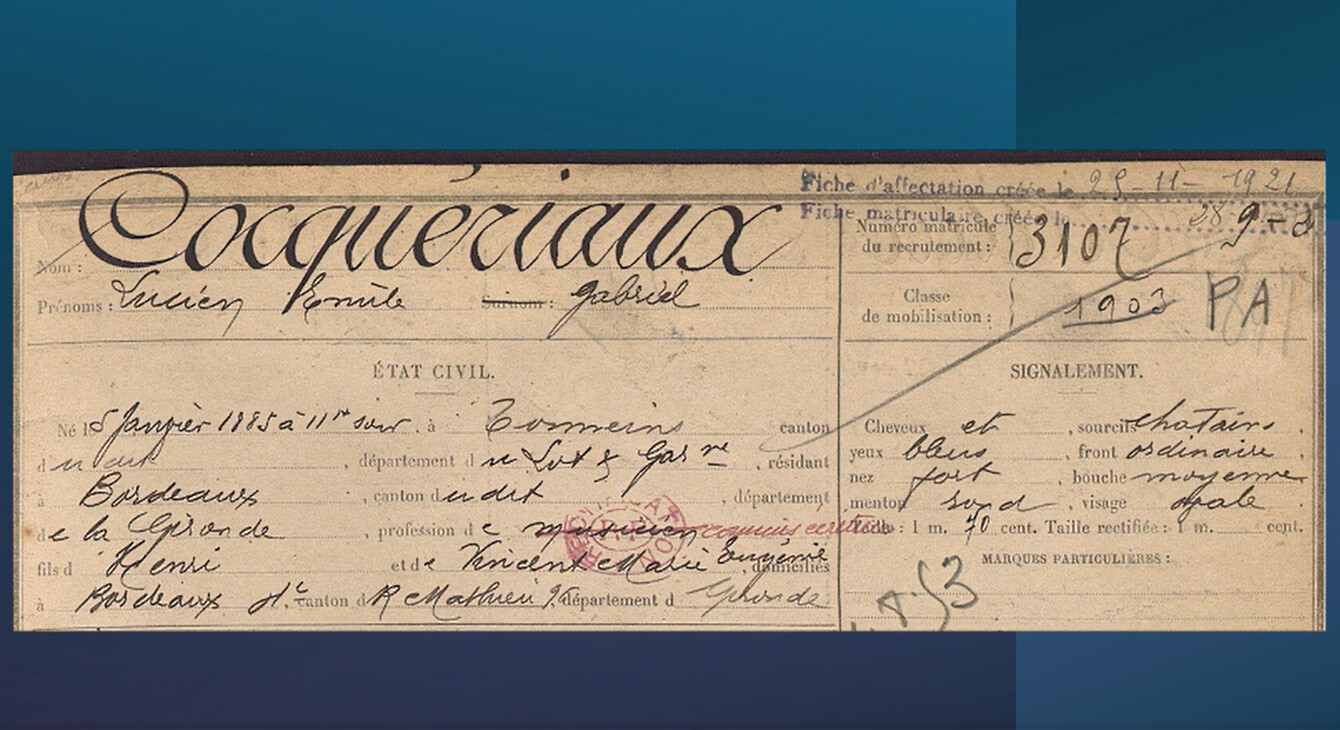 Cocquériaux
Fiche d'affectation créée le 25-11-1921
Fiche matriculaire créée le 28 9-3
Nom :
Numéro matricule
du recrutement : 3107
Prénoms : Lucien Emile Surnom : Gabriel
Classe
de mobilisation : 1903 PA
ÉTAT CIVIL.
SIGNALEMENT.
Né le 5 Janvier 1885 à 11 hr soir, à Tonneins canton
du dit, département du Lot & Garne, résidant
à Bordeaux, canton du dit, département
de la Gironde, profession de musicien commis
fils d Henri et de Vincent Marie Eugenie, domiciliés
à Bordeaux canton d R Mathieu département d Gironde
Cheveux et, sourcils chatains,
yeux bleus, front ordinaire,
nez fort, bouche moyenne
menton rond, visage ovale
Taille : 1 m. 70 cent. Taille rectifiée : 1 m. cent.
MARQUES PARTICULIÈRES :
53